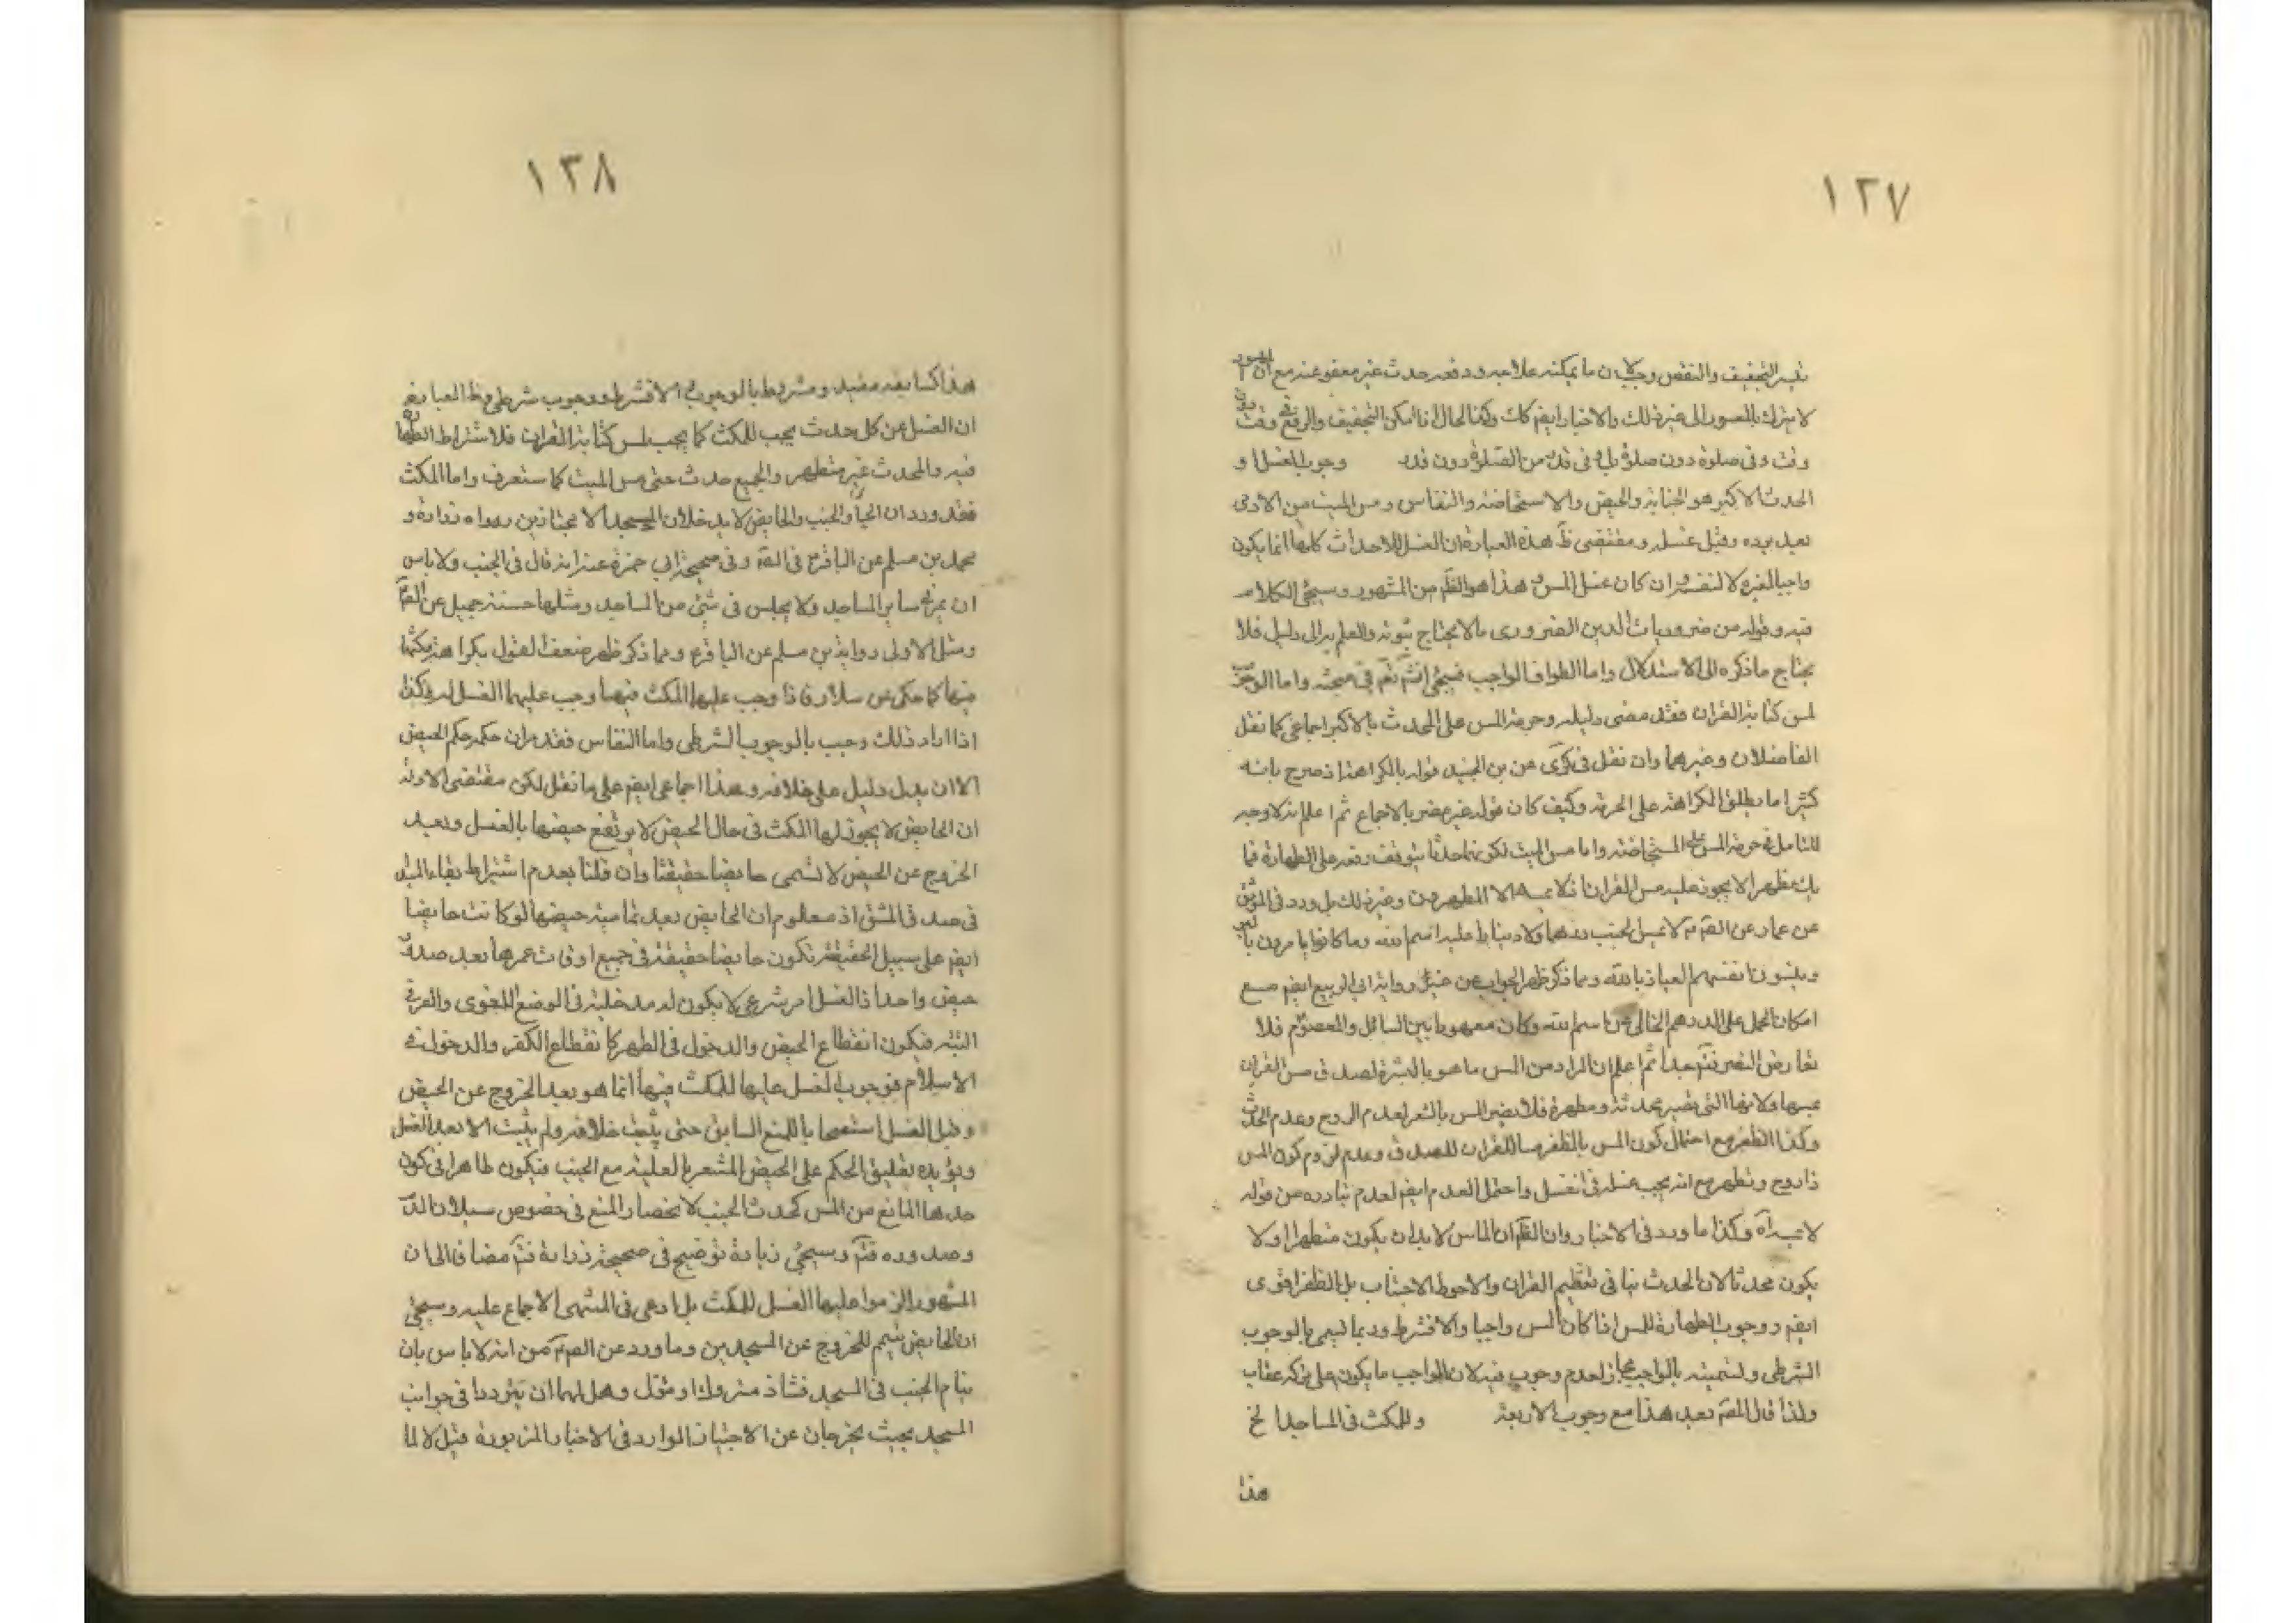 ١٢٧
فيه التخفيف والنقض ولان ما يمكنه علاجه ودفعه حدث غير معفو عنه مع ان الميسور
لا يترك بالمعسور الى غير ذلك والاخبار ايضا كك وكذا الحال اذا امكن التخفيف والرفع في وقت دون
وقت وفى صلوة دون صلوة بل وفى قدر من الصلوة دون قدر وجوب الغسل او
الحدث الاكبر هو الجنابة والحيض والاستحاضة والنفاس ومس الميت من الادمى
بعد برده وقبل غسله ومقتضى ظ هذه العبارة ان الغسل للاحداث كلها انما يكون
واجبا لغيره لا لنفسه وان كان غسل المس هذا هو الظ من المشهور وسيجئ الكلام
فيه وقوله من ضروريات الدين الضرورى ما لا يحتاج ثبوته والعلم به الى دليل فلا
يحتاج ما ذكره الى الاستدلال واما الطواف الواجب فسيجئ انش تع فى مبحثه واما الوجوب
لمس كتابة القران فقد مضى دليله وحرمة المس على المحدث بالاكبر اجماعى كما نقل
الفاضلان وغيرهما وان نقل فى كرى عن بن الجنيد قوله بالكراهة اذ صرح بانه
كثيرا ما يطلق الكراهة على الحرمة وكيف كان قوله غير مضر بالاجماع ثم اعلم انه لا وجه
للتامل فى حرمة المس على المستحاضة واما مس الميت لكونهما حدثا يتوقف رفعه على الطهارة فما
يك مطهرا لا يجوز عليه مس القران اذ لا يمسه الا المطهرون وغير ذلك بل ورد فى الموثق
عن عمار عن الص ع لا يمس الجنب درهما ولا دينارا عليه اسم الله وما كانوا يامرون بالبر
وينسون انفسهم العياذ بالله ومما ذكر ظهر الجواب عن خبر ورواية ابى الربيع ايضا مع
امكان الحمل على الدرهم الخالى عن اسم الله وكان معهودا بين السائل والمعصوم فلا
تعارض النصر فت جدا ثم اعلم ان المراد من المس ما هو بالبشرة لصدق مس القران
عنها ولانها التى تصير محدثة ومطهرة فلا يضر المس بالشعر لعدم الروح وعدم الحدث
وكذا الظفر مع احتمال كون المس بالظفر مسا للقران للصدق وعدم لزوم كون المس
ذا روح وتطهر مع انه يجب غسله فى الغسل واحتمل العدم ايضا لعدم تبادره من قوله
لا يمسه اه وكذا ما ورد فى الاخبار وان الظ ان الماس لا بد ان يكون متطهرا ولا
يكون محدثا لان الحدث ينافى تعظيم القران والاحوط الاجتناب بل الظفر اقوى
ايضا ووجوب الطهارة للمس اذا كان المس واجبا والا فشرط وربما يسمى بالوجوب
الشرطى وتسميته بالواجب مجاز لعدم وجوب فيه لان الواجب ما يكون على تركه عقاب
ولذا قال المص بعد هذا مع وجوب الاربعة وللمكث فى المساجد الخ
هذا
١٣٨
هذا كسابقه مقيد ومشروط بالوجوب والا فشرط ووجوب شرطى وظ العبارة
ان الغسل من كل حدث يجب للمكث كما يجب لمس كتابة القران فلاشتراط الطهارة
فيه والمحدث غير متطهر والجميع حدث حتى مس الميت كما ستعرف واما المكث
فقد ورد ان الجنب والحايض لا يدخلان المسجد الا مجتازين رواه زرارة و
محمد بن مسلم عن الباقر ع فى الصة وفى صحيحة ابى حمزة عنه انه قال فى الجنب ولا باس
ان يمر فى ساير المساجد ولا يجلس فى شئ من المساجد ومثلها حسنة جميل عن الص
ومثل الاولى رواية بن مسلم عن الباقر ع ومما ذكر ظهر ضعف القول بكراهة مكثهما
فيها كما حكى عن سلار فاذا وجب عليهما المكث فيها وجب عليهما الغسل له وكذا
اذا اراد ذلك وجب بالوجوب الشرطى واما النفاس فقد مر ان حكمه حكم الحيض
الا ان يدل دليل على خلافه وهذا اجماعى ايضا على ما نقل لكن مقتضى الادلة
ان الحايض لا يجوز لها المكث فى حال الحيض لا يرتفع حيضها بالغسل وبعد
الخروج عن الحيض لا تسمى حايضا حقيقتا وان قلنا بعدم اشتراط بقاء المبدء
فى صدق المشتق اذ معلوم ان الحايض بعد تمامية حيضها لو كانت حايضا
ايضا على سبيل الحقيقة تكون حايضا حقيقة فى جميع اوقات عمرها بعد صدق
حيض واحد اذ الغسل امر شرعى لا يكون له مدخلية فى الوضع اللغوى والعرفى
البتة فيكون انقطاع الحيض والدخول فى الطهر كانقطاع الكفر والدخول فى
الاسلام فوجوب الغسل عليها للمكث فيها انما هو بعد الخروج عن الحيض
وقبل الغسل استصحابا للمنع السابق حتى يثبت خلافه ولم يثبت الا بعد الغسل
ويؤيده تعليق الحكم على الحيض المشعر بالعلية مع الجنب فيكون ظاهرا فى كون
حدثها المانع من المس كحدث الجنب لا نحصار المنع فى خصوص سيلان الدم
وصدوره فت وسيجئ زيادة توضيح فى صحيحة زرارة فت مضافا الى ان
المشهور الزموا عليها الغسل للمكث بل ادعى فى المنتهى الاجماع عليه وسيجئ
ان الحايض تتيمم للخروج عن المسجدين وما ورد عن الص ع من انه لا باس بان
ينام الجنب فى المسجد فشاذ متروك او مؤل وهل لهما ان يترددا فى جوانب
المسجد بحيث يخرجان عن الاجتياز الوارد فى الاخبار المزبورة قيل لا لما